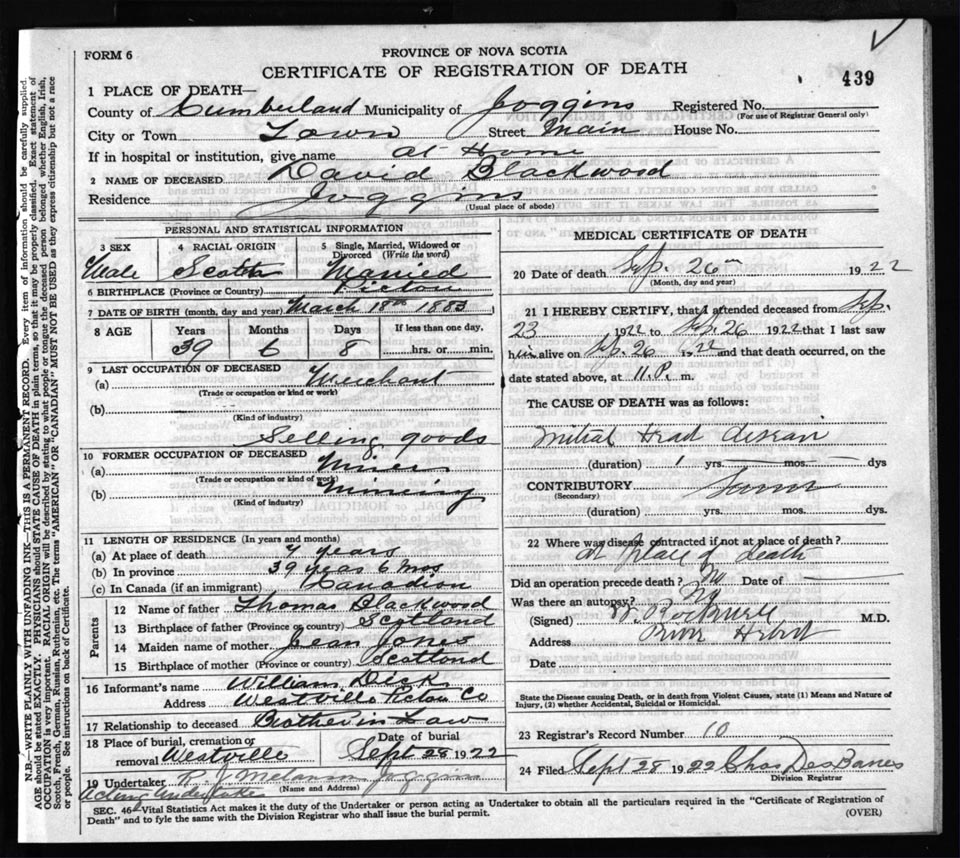 FORM 6
PROVINCE OF NOVA SCOTIA
CERTIFICATE OF REGISTRATION OF DEATH
439
1 PLACE OF DEATH—
County of Cumberland Municipality of Joggins Registered No.
(For use of Registrar General only)
City or Town Town Street Main House No.
If in hospital or institution, give name at Home
2 NAME OF DECEASED David Blackwood
Residence Joggins
(Usual place of abode)
PERSONAL AND STATISTICAL INFORMATION
3 SEX 4 RACIAL ORIGIN 5 Single, Married, Widowed or Divorced (Write the word)
Male Scotch Married
6 BIRTHPLACE (Province or Country) Pictou
7 DATE OF BIRTH (month, day and year) March 18th 1883
8 AGE Years Months Days If less than one day.
39 6 8 hrs. or min.
9 LAST OCCUPATION OF DECEASED
(a) Merchant
(Trade or occupation or kind or work)
(b)
(Kind of industry)
Selling goods
10 FORMER OCCUPATION OF DECEASED
(a) Miner
(Trade or occupation or kind of work)
(b) Mining
(Kind of industry)
11 LENGTH OF RESIDENCE (In years and months)
(a) At place of death 7 years
(b) In province 39 years 6 mos
(c) In Canada (if an immigrant) Canadian
Parents
12 Name of father Thomas Blackwood
13 Birthplace of father (Province or country) Scotland
14 Maiden name of mother Jean Jones
15 Birthplace of mother (Province or country) Scotland
16 Informant's name William Dick
Address Westville Pictou Co
17 Relationship to deceased Brother in Law
18 Place of burial, cremation or removal Westville Date of burial Sept 28 1922
19 Undertaker R J Melanson Joggins
(Name and Address)
Acting Undertaker
MEDICAL CERTIFICATE OF DEATH
20 Date of death Sep. 26th 1922
(Month, day and year)
21 I HEREBY CERTIFY, that I attended deceased from Sep.
23 1922 to Sep. 26 1922 that I last saw
him alive on Sep. 26 1922 and that death occurred, on the
date stated above, at 11.P. m.
The CAUSE OF DEATH was as follows:
Mitral Heart disease
(duration) 1 yrs. — mos. — dys
CONTRIBUTORY
(Secondary)
(duration) yrs. mos. dys.
22 Where was disease contracted if not at place of death?
at place of death
Did an operation precede death? No Date of —
Was there an autopsy? No
(Signed) W. Rockwell M.D.
Address River Hebert
Date
State the Disease causing Death, or in death from Violent Causes, state (1) Means and Nature of
Injury, (2) whether Accidental, Suicidal or Homicidal.
23 Registrar's Record Number 10
24 Filed Sept 28 1922 Chas DesBarres
Division Registrar
SEC. 46—Vital Statistics Act makes it the duty of the Undertaker or person acting as Undertaker to obtain all the particulars required in the "Certificate of Registration of
Death" and to fyle the same with the Division Registrar who shall issue the burial permit.
(OVER)
N.B.—WRITE PLAINLY WITH UNFADING INK.—THIS IS A PERMANENT RECORD. Every item of information should be carefully supplied.
AGE should be stated EXACTLY. PHYSICIANS should STATE CAUSE OF DEATH in plain terms, so that it may be properly classified. Exact statement of
OCCUPATION is very important. RACIAL ORIGIN will be described by stating to what people or tongue the deceased person belonged whether English, Irish,
Scotch, French, German, Russian, Ruthenian, etc. The terms "AMERICAN" or "CANADIAN" MUST NOT BE USED as they express citizenship but not a race
or people. See instructions on back of Certificate.